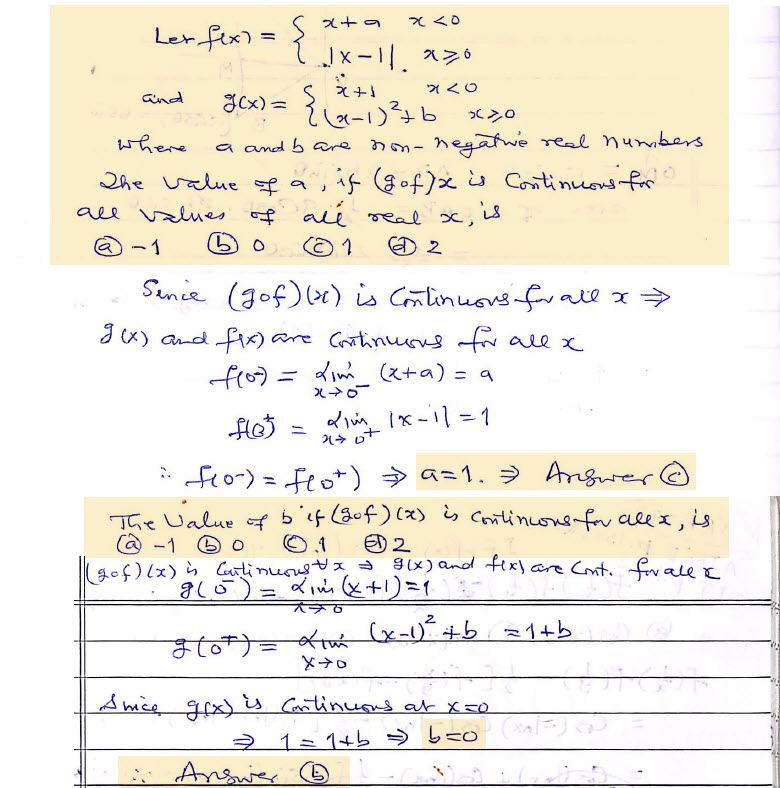 Let f(x) = { x+a x<0
|x-1|. x≥0
and g(x) = { x+1 x<0
(x-1)²+b x≥0
where a and b are non-negative real numbers
The value of a, if (gof)x is Continuous for
all values of all real x, is
ⓐ -1 ⓑ 0 ⓒ 1 ⓓ 2
Since (gof)(x) is Continuous for all x ⇒
g(x) and f(x) are Continuous for all x
f(0-) = Lim x→0- (x+a) = a
f(0+) = Lim x→0+ |x-1| = 1
∴ f(0-) = f(0+) ⇒ a=1. ⇒ Answer ⓒ
The Value of b if (gof)(x) is continuous for all x, is
ⓐ -1 ⓑ 0 ⓒ .1 ⓓ 2
(gof)(x) is Continuous ∀ x ⇒ g(x) and f(x) are Cont. for all x
g(0-) = Lim x→0 (x+1) = 1
g(0+) = Lim x→0 (x-1)² + b = 1+b
Since g(x) is Continuous at x=0
⇒ 1 = 1+b ⇒ b=0
∴ Answer ⓑ